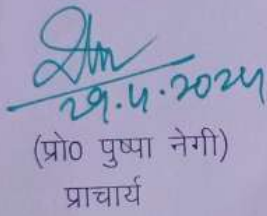 29.4.2024
(प्रो० पुष्पा नेगी)
प्राचार्य